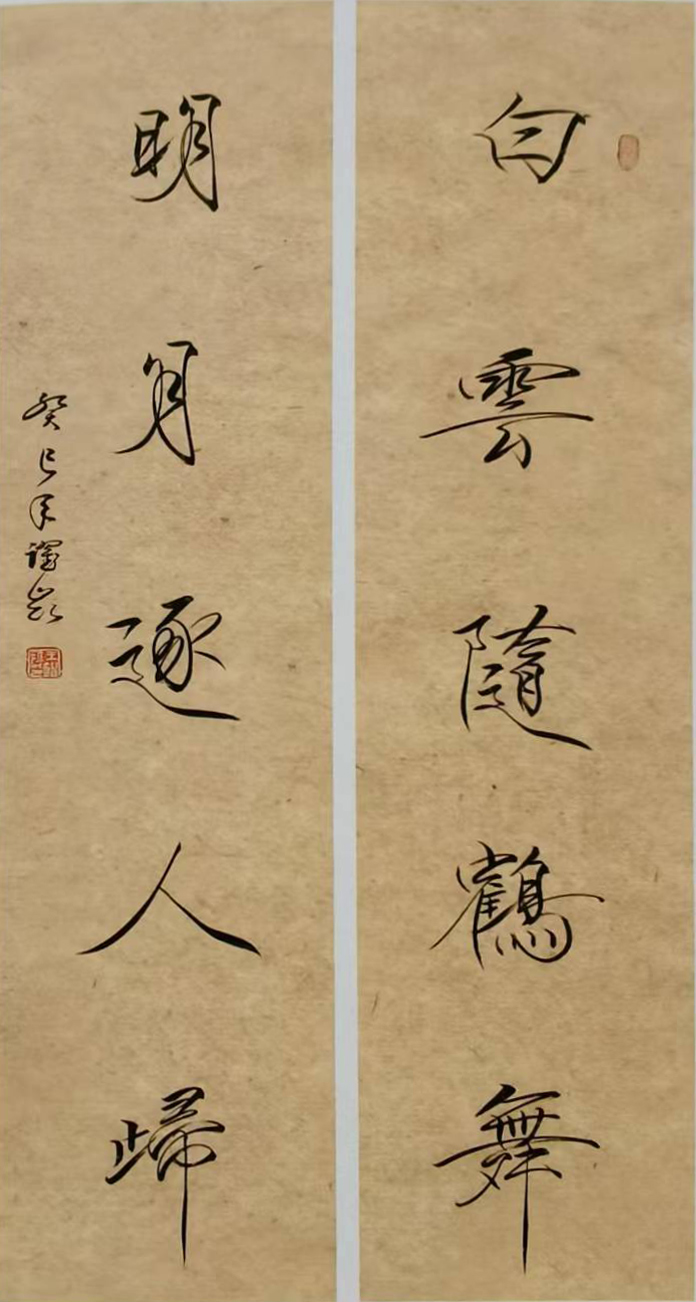 白雲隨鶴舞
明月逐人歸
癸巳年